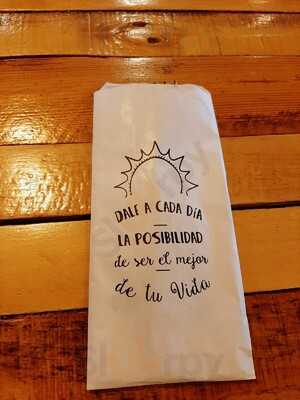 DALE A CADA DÍA
LA POSIBILIDAD
de ser el mejor
de tu Vida